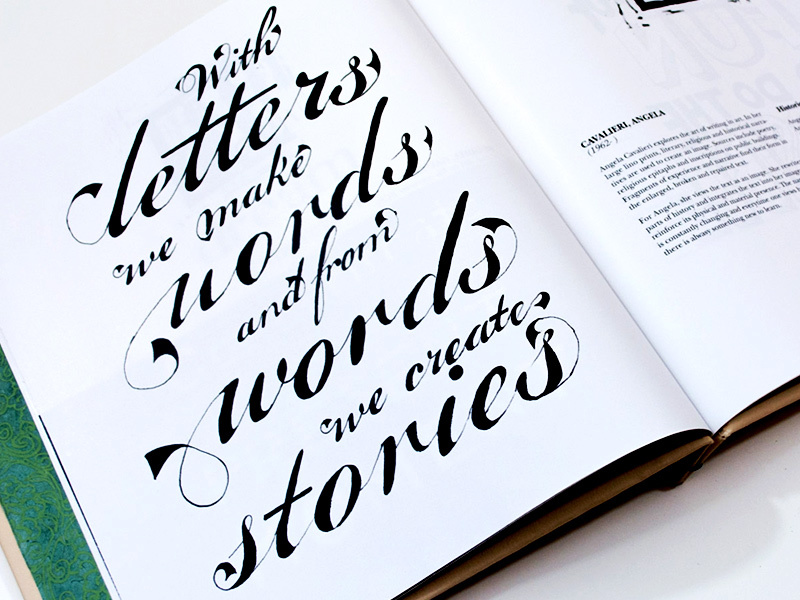 With
letters
we make
words
and from
words
we create
stories
CAVALIERI, ANGELA
(1962-)
Angela Cavalieri explores the art of writing in art. In her
large lino prints, literary, religious and historical narra-
tives are used to create an image. Sources include poetry,
religious epitaphs and inscriptions on public buildings.
Fragments of experience and narrative find their form in
the enlarged, broken and repaired text.
For Angela, she views the text as an image. She
parts of history and integrates the text into her
reinforce its physical and material presence. The
is constantly changing and everytime one views
there is always something new to learn.